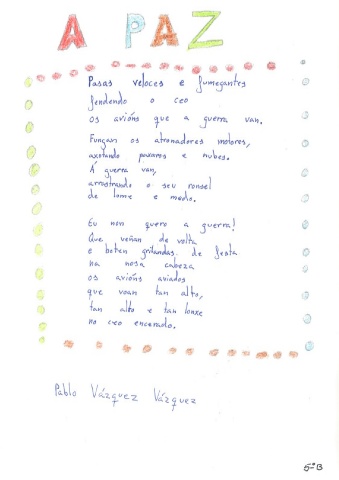 A PAZ
Pasas veloces e fumegantes
fendendo o ceo
os avións que a guerra van.
Fungan os atronadores motores,
axotando paxaros e nubes.
Á guerra van,
arrastrando o seu ronsel
de lume e medio.
Eu non quero a guerra!
Que veñan de volta
e boten grilandas de festa
na nosa cabeza
os avións aviados
que voan tan alto,
tan alto e tan lonxe
no ceo encerado.
Pablo Vázquez Vázquez
5ºB